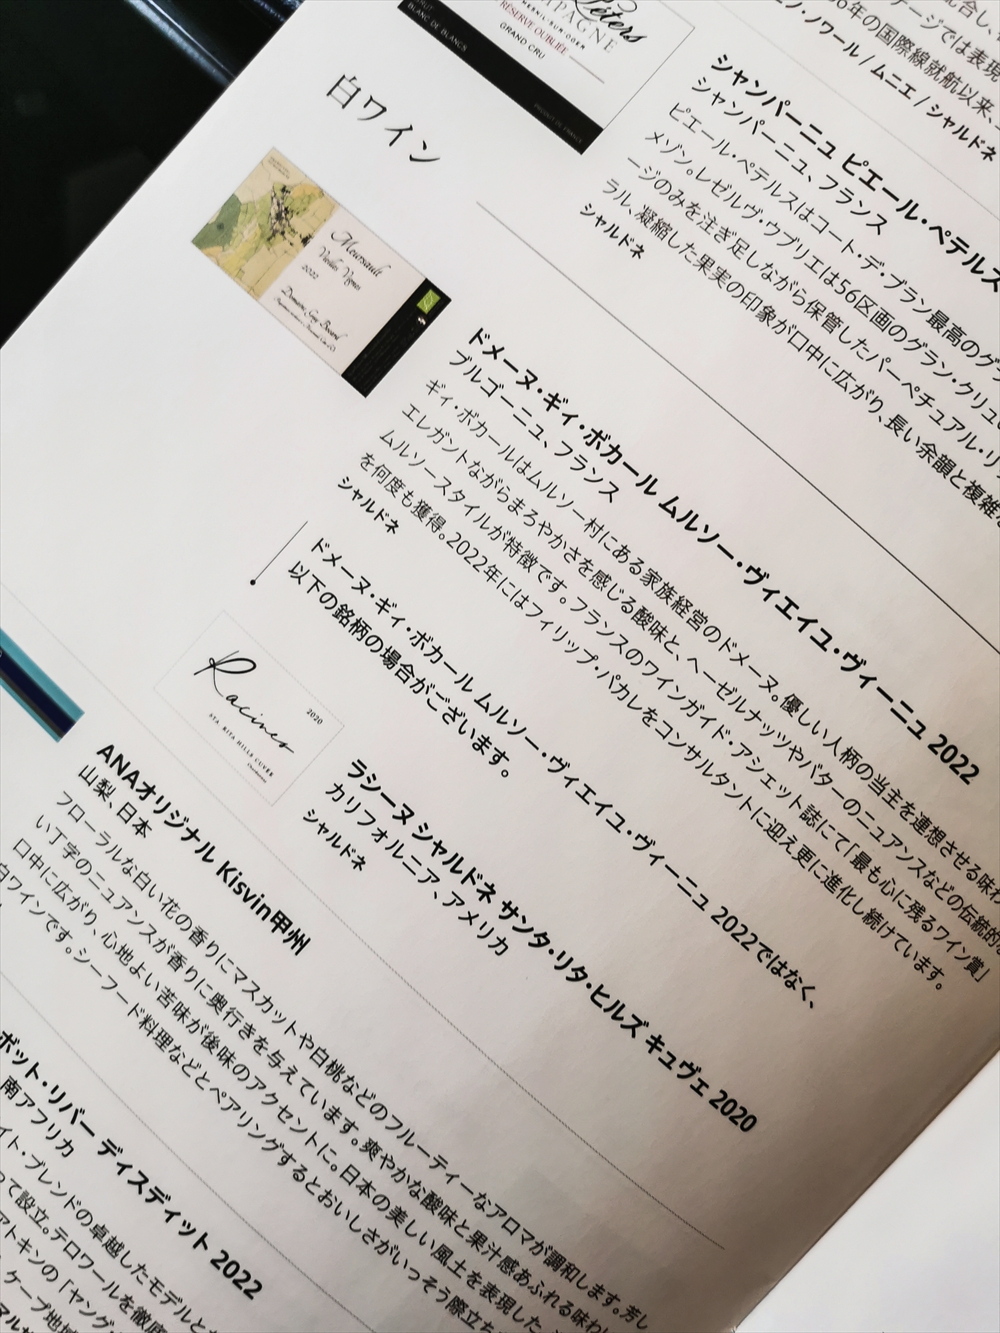 BRUT
BLANC DE BLANCS
Péters
MESNIL-SUR-OGER
RÉSERVE OUBLIÉE
GRAND CRU
PRODUIT DE FRANCE
6年の国際線就航以来、
ノ・ノワール / ムニエ / シャルドネ
シャンパーニュ ピエール・ペテルス
シャンパーニュ、フランス
ピエール・ペテルスはコート・デ・ブラン最高のグラ
メゾン。レゼルヴ・ウブリエは56区画のグラン・クリュ
ージのみを注ぎ足しながら保管したパーペチュアル・リ
ラル、凝縮した果実の印象が口中に広がり、長い余韻と複雑
シャルドネ
白ワイン
Meursault
Vieilles Vignes
2022
Domaine Guy Bocard
ドメーヌ・ギィ・ボカール ムルソー・ヴィエイユ・ヴィーニュ 2022
ブルゴーニュ、フランス
ギィ・ボカールはムルソー村にある家族経営のドメーヌ。優しい人柄の当主を連想させる味わ
エレガントながらまろやかさを感じる酸味と、ヘーゼルナッツやバターのニュアンスなどの伝統的な
ムルソースタイルが特徴です。フランスのワインガイド・アシェット誌にて「最も心に残るワイン賞」
を何度も獲得。2022年にはフィリップ・パカレをコンサルタントに迎え更に進化し続けています。
シャルドネ
ドメーヌ・ギィ・ボカール ムルソー・ヴィエイユ・ヴィーニュ 2022ではなく、
以下の銘柄の場合がございます。
Racines
2020
STA. RITA HILLS CUVÉE
Chardonnay
ラシーヌ シャルドネ サンタ・リタ・ヒルズ キュヴェ 2020
カリフォルニア、アメリカ
シャルドネ
ANAオリジナル Kisvin甲州
山梨、日本
フローラルな白い花の香りにマスカットや白桃などのフルーティーなアロマが調和します。芳し
い丁字のニュアンスが香りに奥行きを与えています。爽やかな酸味と果汁感あふれる味わ
口中に広がり、心地よい苦味が後味のアクセントに。日本の美しい風土を表現した
白ワインです。シーフード料理などとペアリングするとおいしさがいっそう際立ち
ボット・リバー ディスディット 2022
南アフリカ
イト・ブレンドの卓越したモデルと
って設立。テロワールを徹底
アトキンの「ヤング
ケープ地